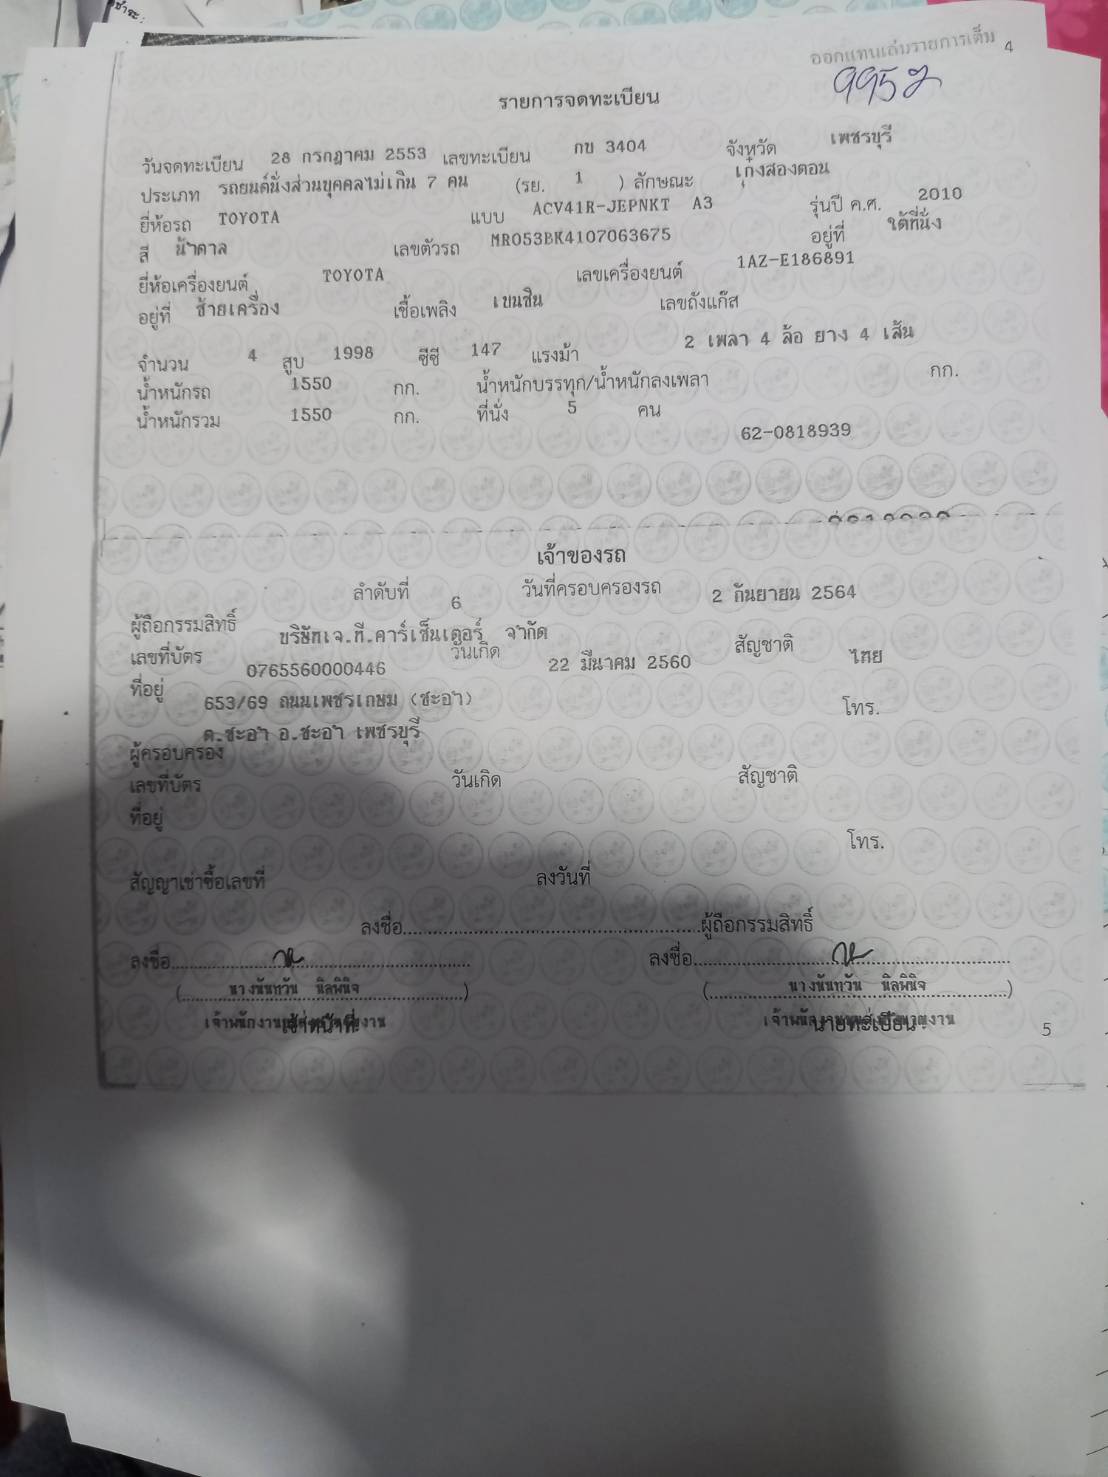 ชำระ:
ออกแทนเล่มรายการเต็ม 4
รายการจดทะเบียน
วันจดทะเบียน 28 กรกฎาคม 2553 เลขทะเบียน กข 3404 จังหวัด เพชรบุรี
ประเภท รถยนต์นั่งส่วนบุคคลไม่เกิน 7 คน (รย. 1 ) ลักษณะ เก๋งสองตอน
ยี่ห้อรถ TOYOTA แบบ ACV41R-JEPNKT A3 รุ่นปี ค.ศ. 2010
สี น้ำตาล เลขตัวรถ MR053BK4107063675 อยู่ที่ ใต้ที่นั่ง
ยี่ห้อเครื่องยนต์ TOYOTA เลขเครื่องยนต์ 1AZ-E186891
อยู่ที่ ซ้ายเครื่อง เชื้อเพลิง เบนซิน เลขถังแก๊ส
จำนวน 4 สูบ 1998 ซีซี 147 แรงม้า 2 เพลา 4 ล้อ ยาง 4 เส้น
น้ำหนักรถ 1550 กก. น้ำหนักบรรทุก/น้ำหนักลงเพลา กก.
น้ำหนักรวม 1550 กก. ที่นั่ง 5 คน
62-0818939
เจ้าของรถ
ลำดับที่ 6 วันที่ครอบครองรถ 2 กันยายน 2564
ผู้ถือกรรมสิทธิ์ บริษัทเจ.ที.คาร์เซ็นเตอร์ จำกัด
เลขที่บัตร 0765560000446 วันเกิด 22 มีนาคม 2560 สัญชาติ ไทย
ที่อยู่ 653/69 ถนนเพชรเกษม (ชะอำ) โทร.
ต.ชะอำ อ.ชะอำ เพชรบุรี
ผู้ครอบครอง
เลขที่บัตร วันเกิด สัญชาติ
ที่อยู่
โทร.
สัญญาเช่าซื้อเลขที่ ลงวันที่
ลงชื่อ........................................................ผู้ถือกรรมสิทธิ์
ลงชื่อ........................................................ ลงชื่อ........................................................
(นางนันทวัน นิลพินิจ) (นางนันทวัน นิลพินิจ)
เจ้าหน้าที่ นายทะเบียน
5